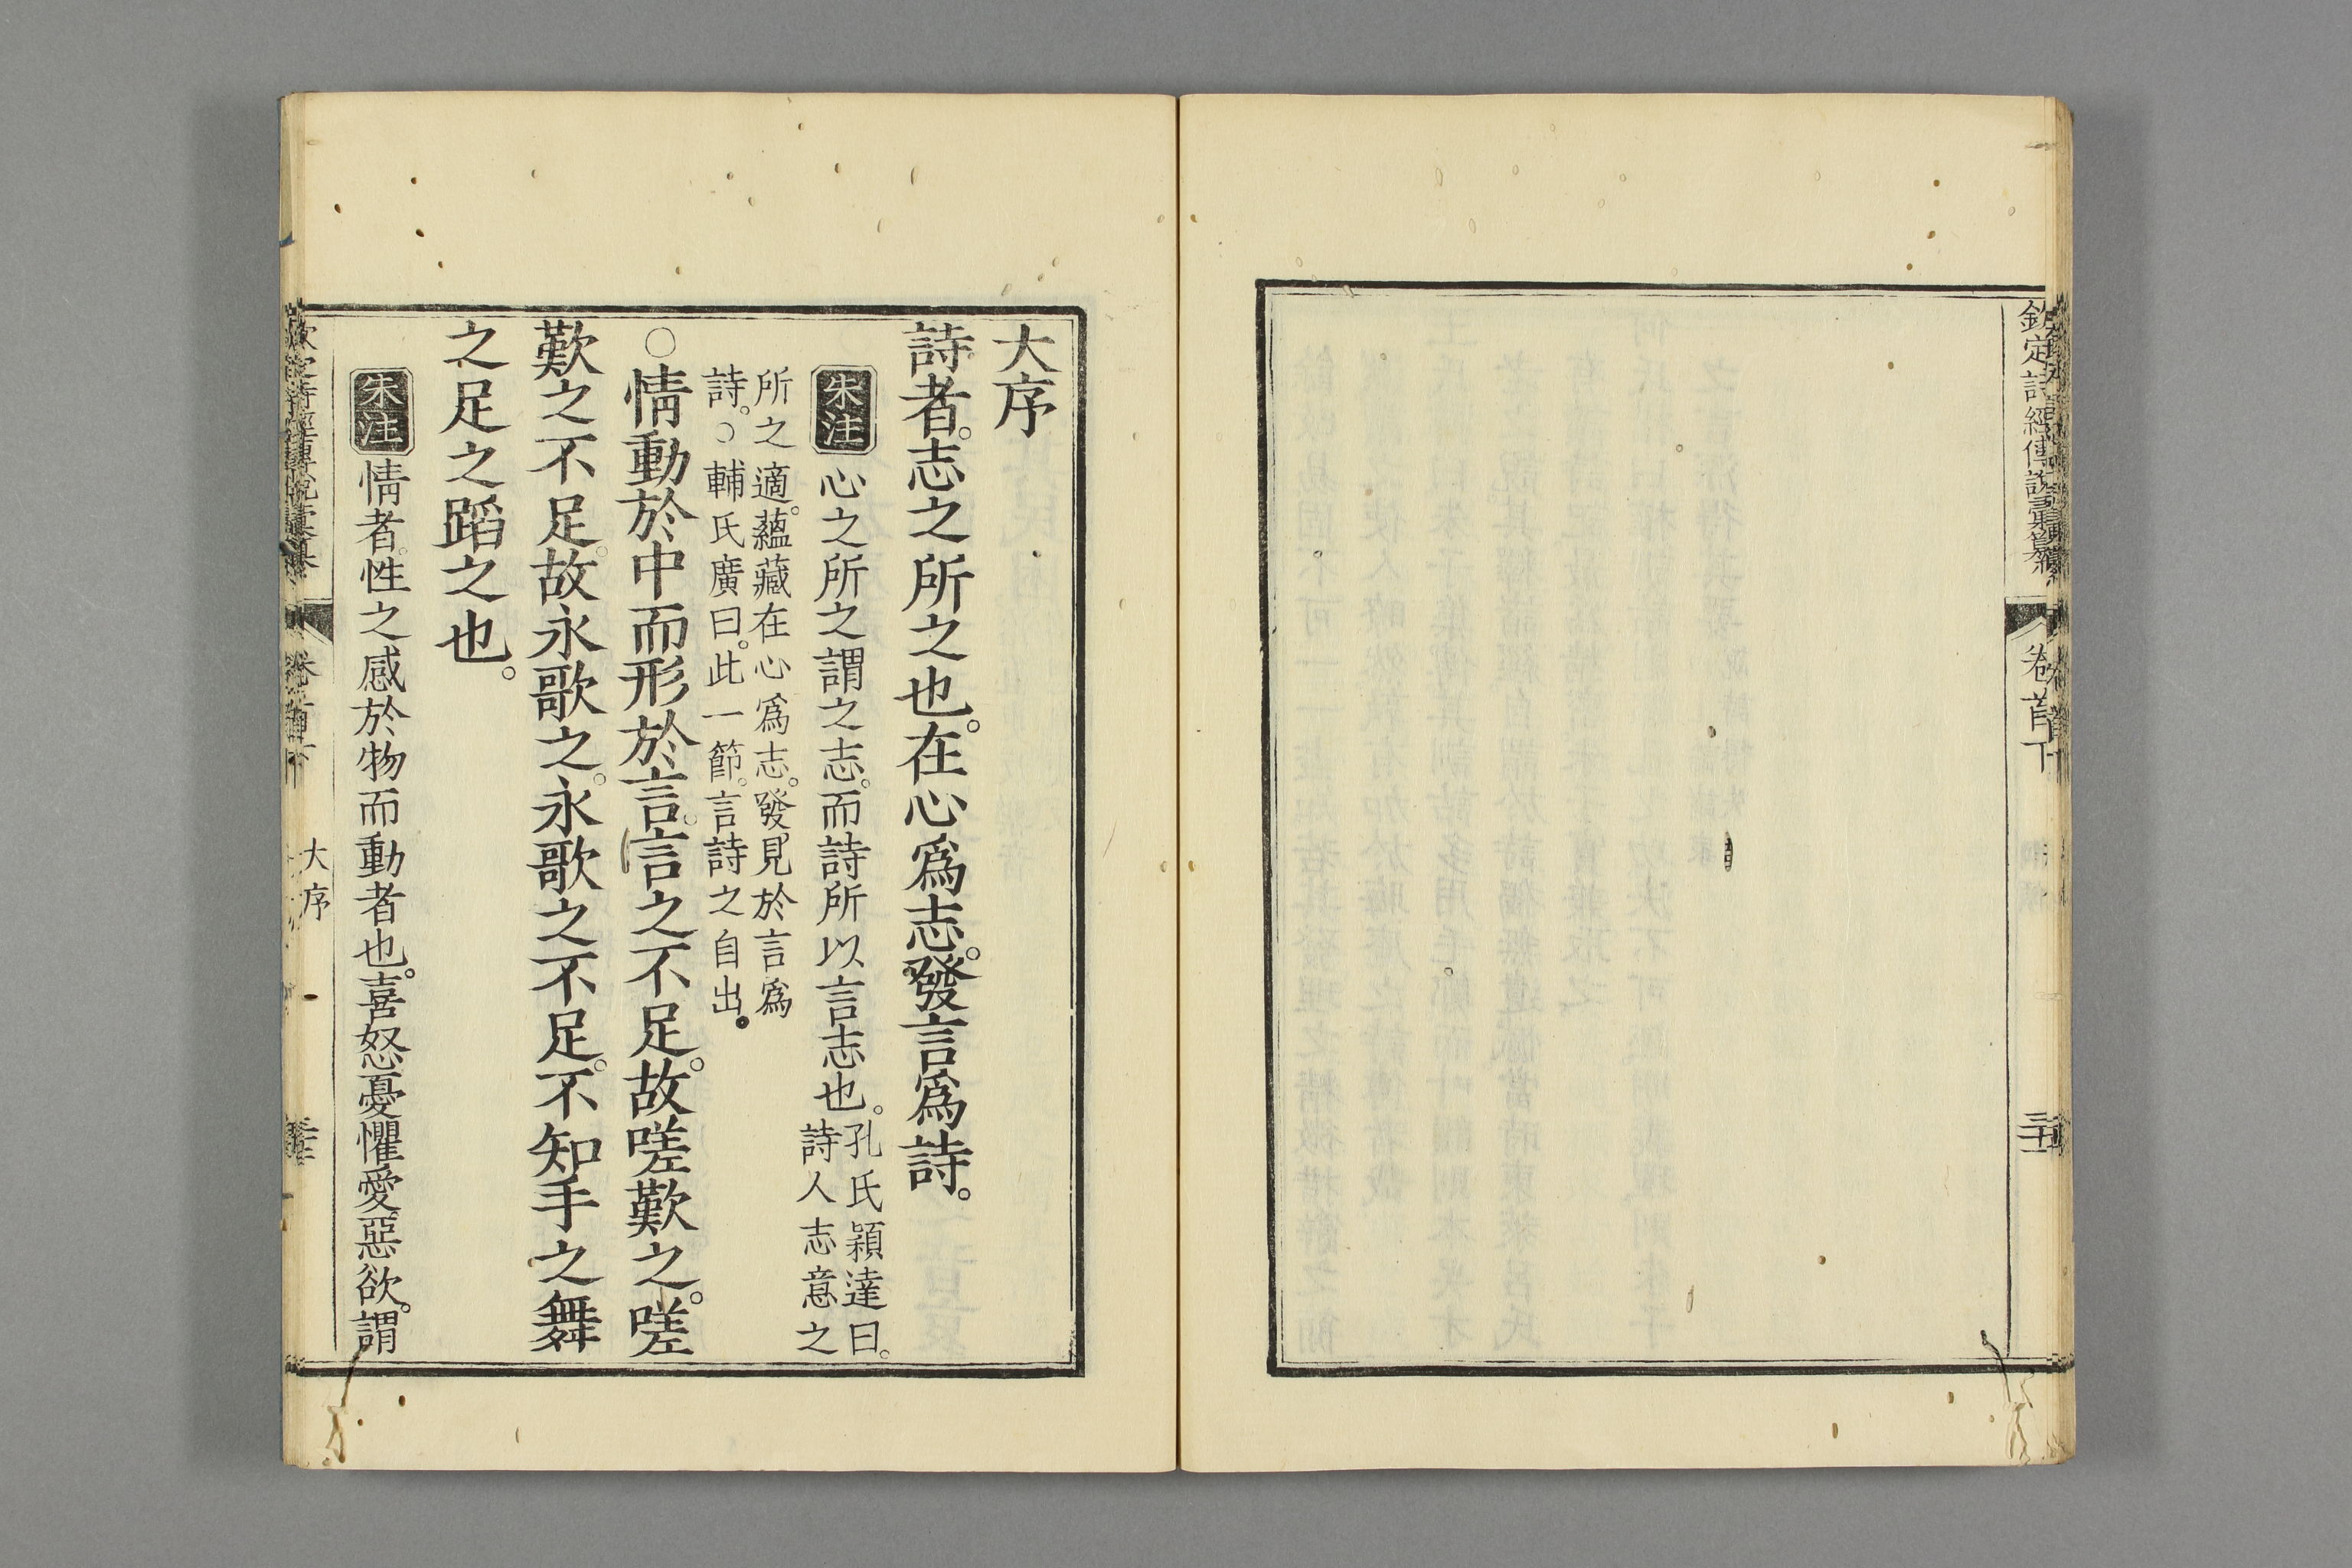 欽定詩經傳說彙纂 卷首下
大序
詩者。志之所之也。在心爲志。發言爲詩。
朱注 心之所之謂之志。而詩所以言志也。孔氏穎達曰。
詩人志意之
所之適。蘊藏在心爲志。發見於言爲
詩。○輔氏廣曰。此一節。言詩之自出。
○情動於中而形於言。言之不足。故嗟歎之。嗟
歎之不足。故永歌之。永歌之不足。不知手之舞
之足之蹈之也。
朱注 情者。性之感於物而動者也。喜怒憂懼愛惡欲。謂
大序